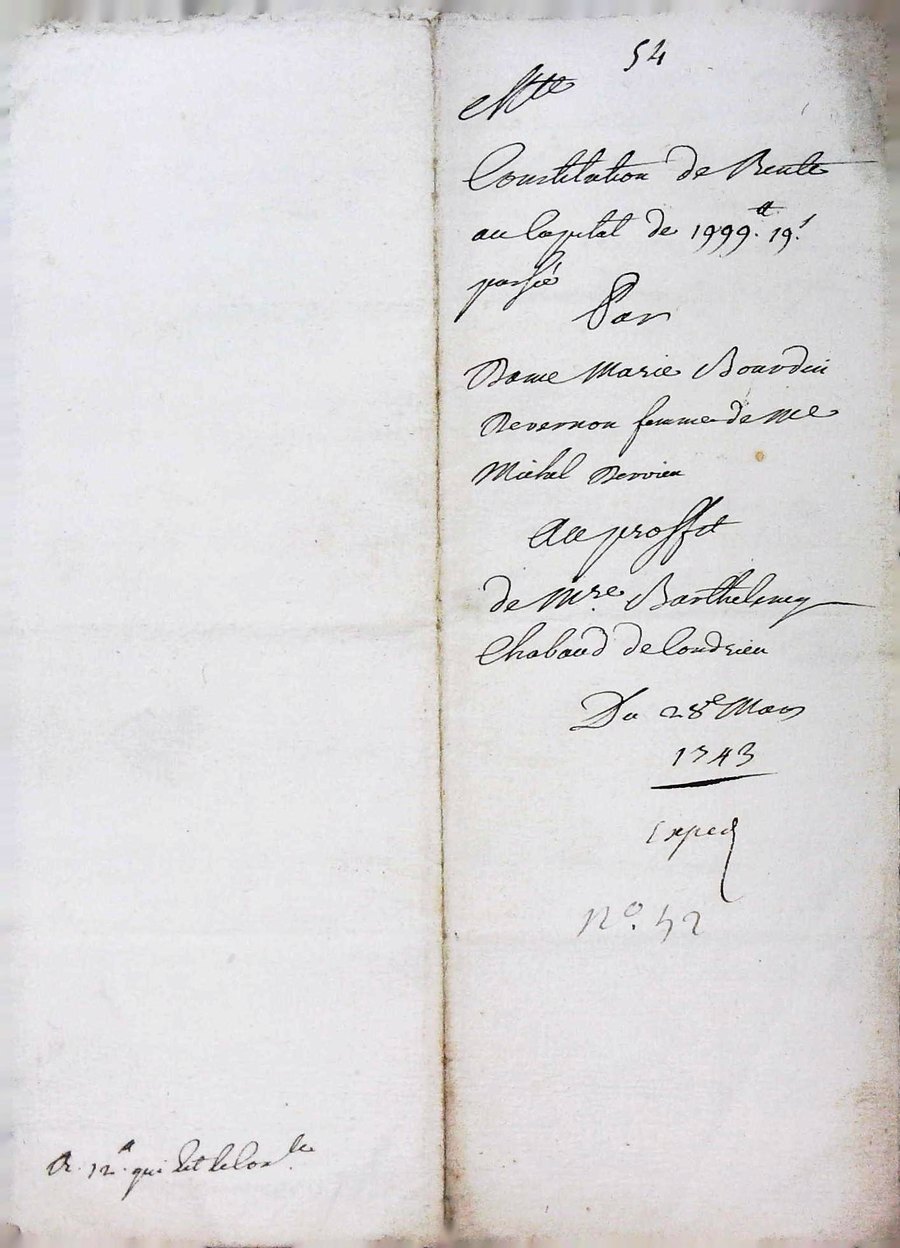 54
Constitution de Rente
au Capital de 1999.tt 19.s
passée
Par
Dame Marie Bourdin
Devernon femme de Me
Michel Dervieu
Au proffit
de Mre. Barthelemy
Chabaud de Condrieu
Du 28e Mars
1743
Exped
No. 52
R. 12.tt qui